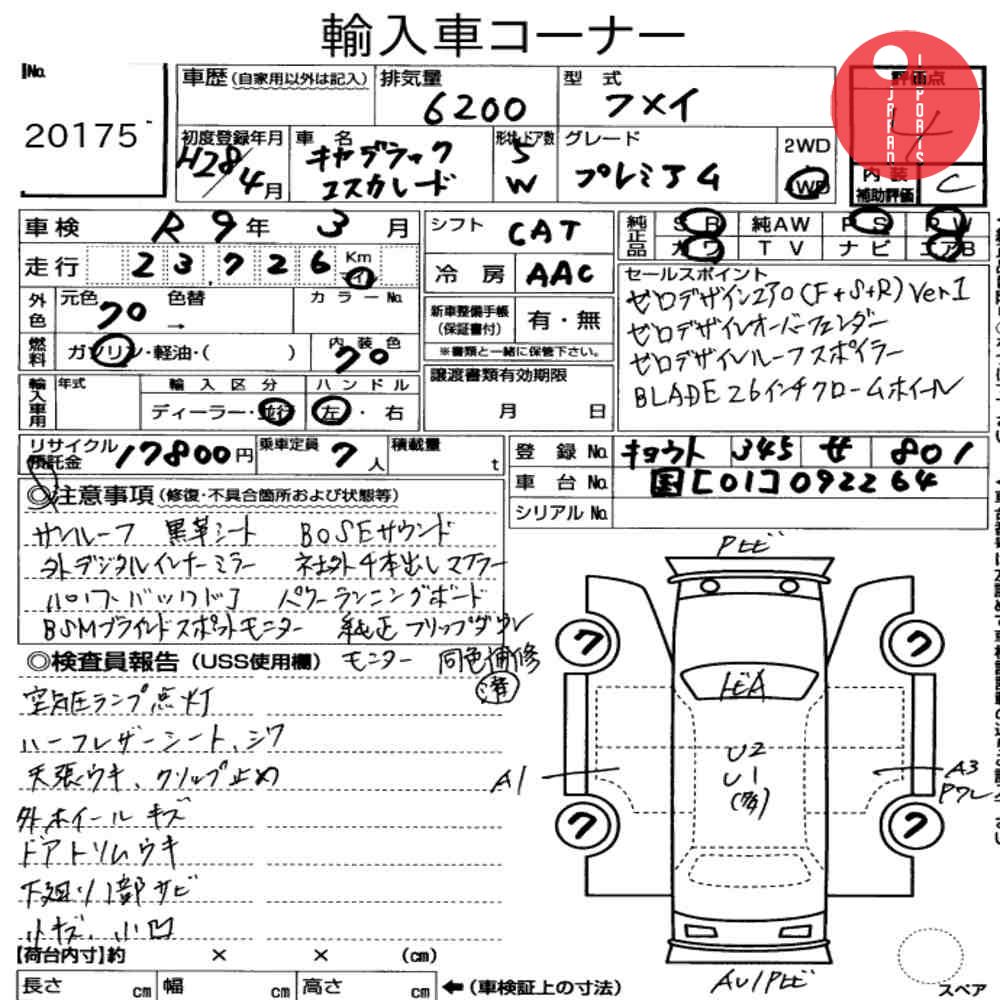 輸入車コーナー
JAPAN IMPORTS
No. 20175
車歴(自家用以外は記入) 排気量 6200 型式 フメイ 評価点 4
初度登録年月 H28/4月 車名 キャデラック エスカレード 形状ドア数 5 W グレード プレミアム 2WD 4WD 内装補助評価 C
車検 R9年3月 シフト CAT 純正品 SR 純AW PS PW
カワ TV ナビ エアB
走行 23,726 Km マイル 冷房 AAC
外色 元色 クロ 色替 → カラーNo.
新車整備手帳(保証書付) 有・無
※書類と一緒に保管下さい。
燃料 ガソリン・軽油・( ) 内装色 クロ
セールスポイント
ゼロデザイン230(F+S+R)Ver1
ゼロデザインオーバーフェンダー
ゼロデザインルーフスポイラー
BLADE26インチクロームホイール
輸入車用 年式 輸入区分 ディーラー・並行 ハンドル 左・右
譲渡書類有効期限 月 日
リサイクル預託金 17800円 乗車定員 7人 積載量 t
登録No. キョウト 345 せ 801
車台No. 国[01]092264
シリアルNo.
◎注意事項(修復・不具合箇所および状態等)
サンルーフ 黒革シート BOSEサウンド
外デジタルインナーミラー 社外4本出しマフラー
パワーバックドア パワーランニングボード
BSMブラインドスポットモニター 純正フリップダウン
モニター 同色補修済
◎検査員報告(USS使用欄)
空気圧ランプ点灯
ハーフレザーシート、シワ
天張ウキ、クリップ止め
外ホイールキズ
ドアトリムウキ
下廻り1部サビ
小キズ、小凹
Pヒビ
フ フ
トビA
U2
U1
A1
A3
フ フ
AU1Pヒビ
【荷台内寸】約 × × (cm)
長さ cm 幅 cm 高さ cm ←(車検証上の寸法)
スペア